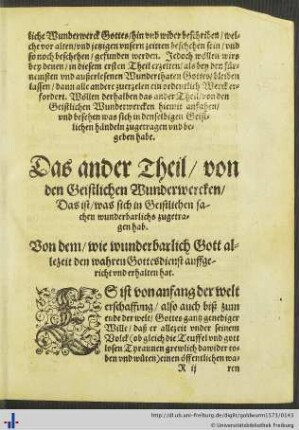 liche Wunderwerck Gottes/ hin vnd wider beschriben/ wel-
che vor alten/ vnd jetzigen vnsern zeitten beschehen sein/ vnd
so noch beschehen/ gefunden werden. Jedoch wöllen wirs
bey denen/ in disem ersten Theil erzelten/ als bey den für-
nemsten vnd außerlesenen Wunderthaten Gottes/ bleiben
lassen/ dann alle andere zuerzelen ein ordentlich Werck er-
fordern. Wöllen derhalben das ander Theil/ von den
Geistlichen Wunderwercken hiemit anfahen/
vnd besehen was sich in denselbigen Geist-
lichen händeln zugetragen vnd be-
geben habe.
Das ander Theil/ von
den Geistlichen Wunderwercken/
Das ist/ was sich in Geistlichen sa-
chen wunderbarlichs zugetra-
gen hab.
Von dem/ wie wunderbarlich Gott al-
lezeit den wahren Gottesdienst auffge-
richt vnd erhalten hat.
ES ist von anfang der welt
erschaffung/ also auch biß zum
ende der welt/ Gottes gantz genediger
Wille/ daß er allezeit vnder seinem
Volck (ob gleich die Teuffel vnd gott
losen Tyrannen grewlich darwider to-
ben vnd wüten) einen öffentlichen wa-
R ij ren
http://dl.ub.uni-freiburg.de/diglit/goldwurm1573/0143
© Universitätsbibliothek Freiburg